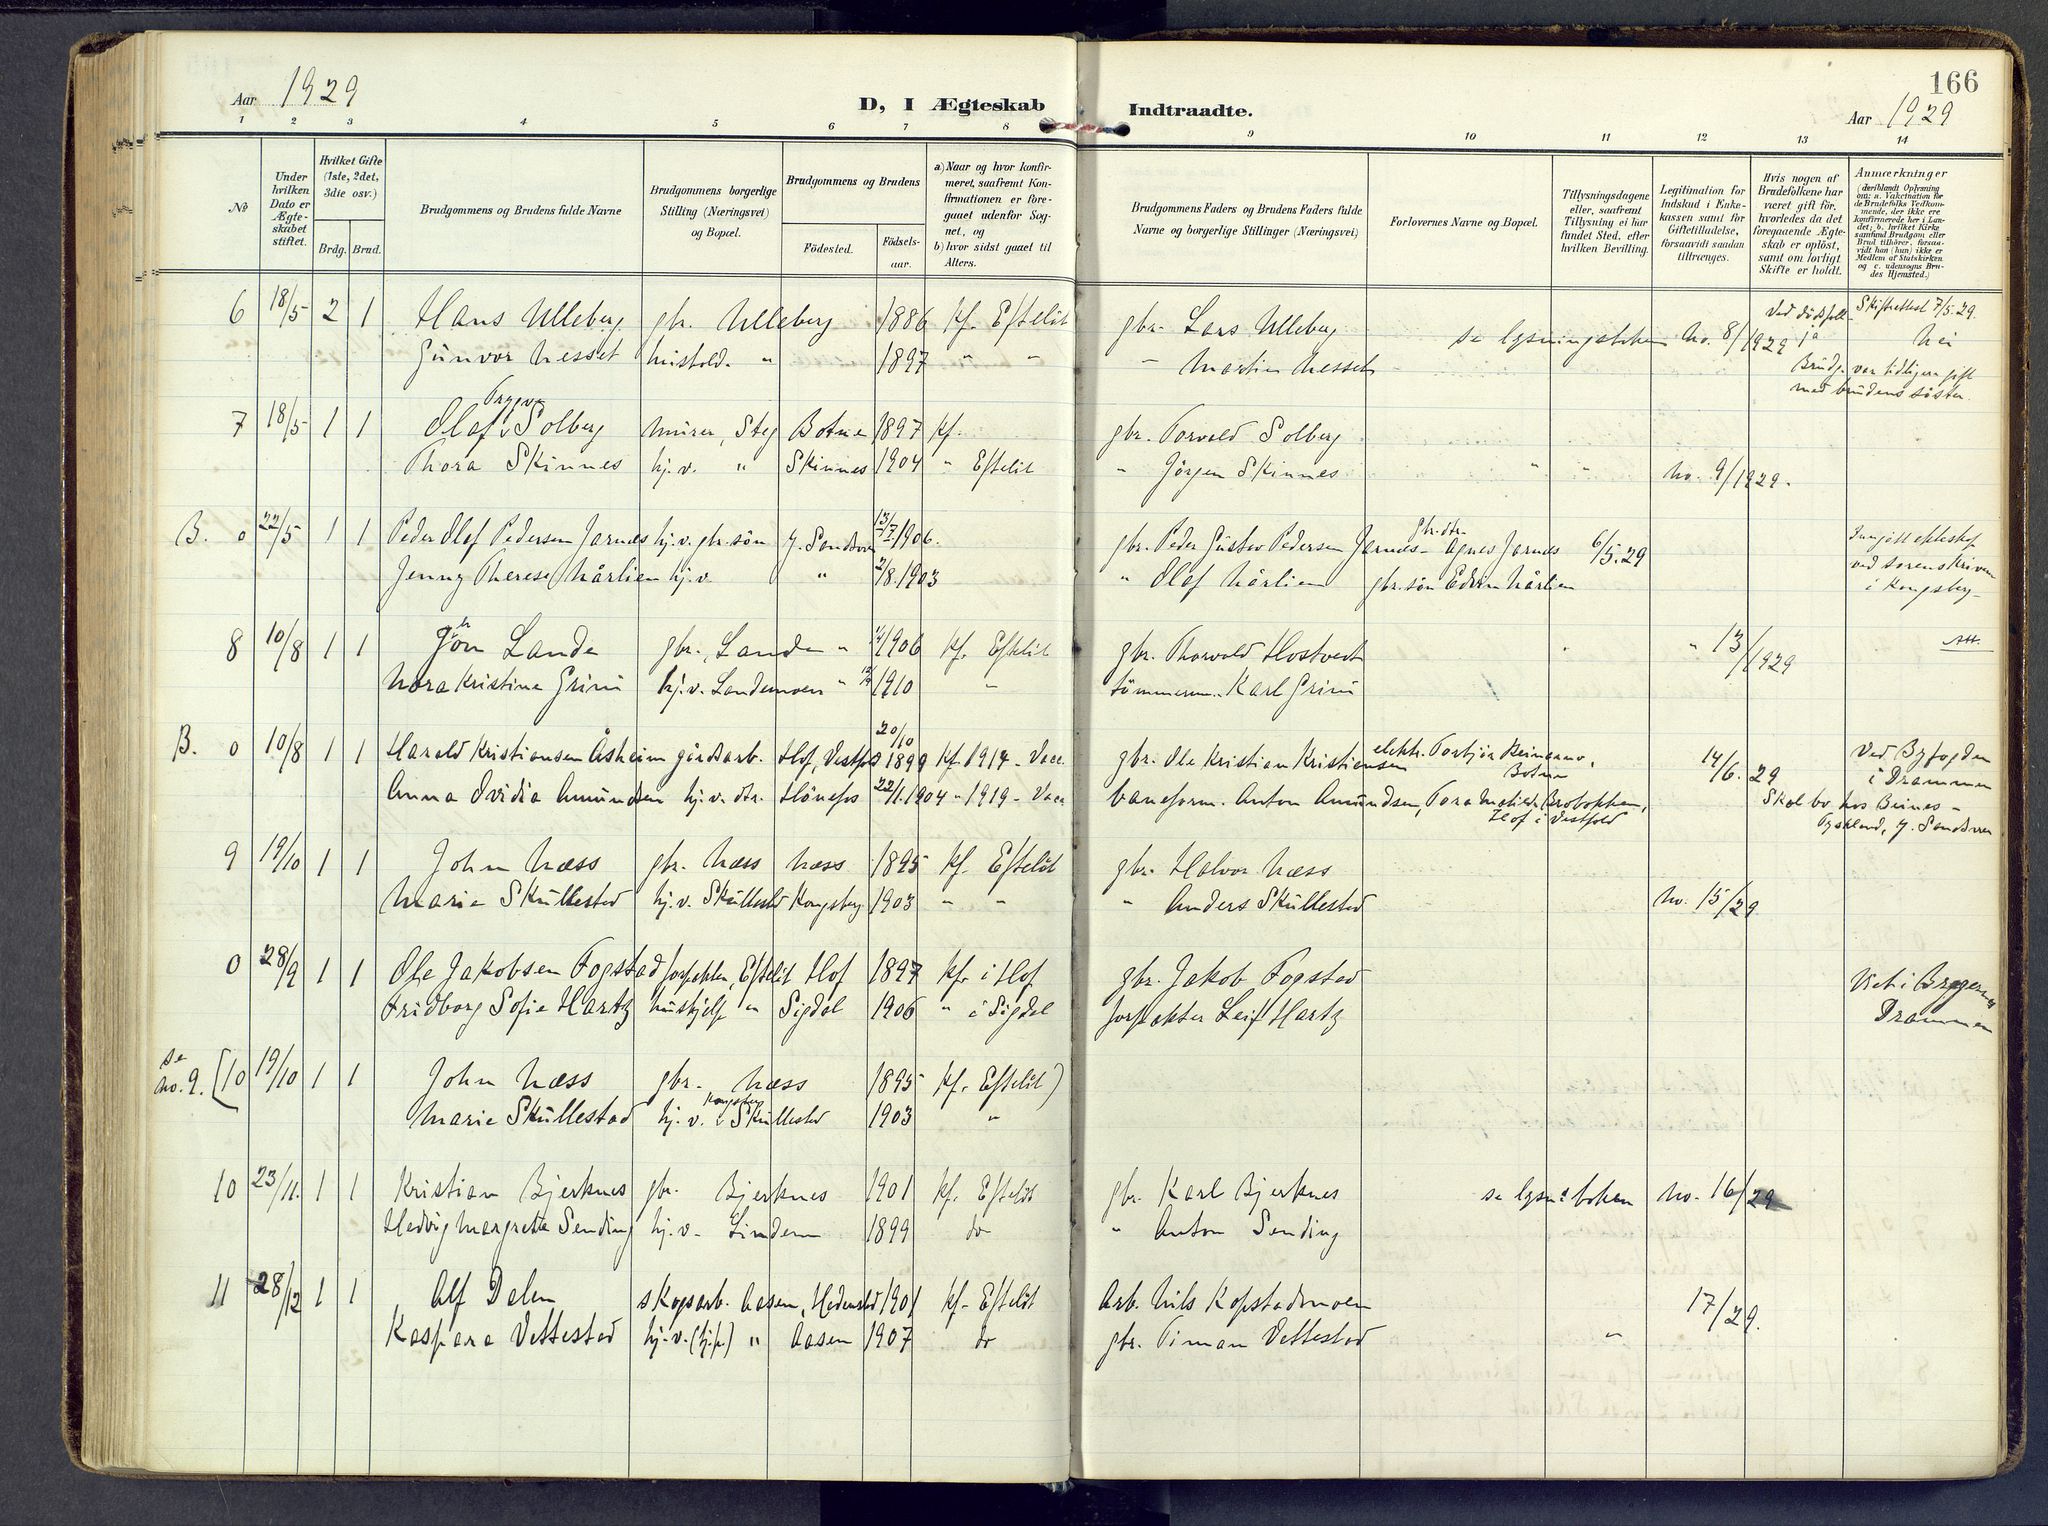 166
Aar 1929
D, I Ægteskab Indtraadte.
Aar 1929
1 2 3 4 5 6 7 8 9 10 11 12 13 14
No
Under hvilken Dato er Ægteskabet stiftet.
Hvilket Gifte (1ste, 2det, 3die osv.)
Brdg. Brud.
Brudgommens og Brudens fulde Navne
Brudgommens borgerlige Stilling (Næringsvei) og Bopæl.
Brudgommens og Brudens
Födested. Födselsaar.
a) Naar og hvor konfirmeret, saafremt Konfirmationen er foregaaet udenfor Sognet, og
b) hvor sidst gaaet til Alters.
Brudgommens Faders og Brudens Faders fulde Navne og borgerlige Stillinger (Næringsvei)
Forlovernes Navne og Bopæl.
Tillysningsdagene eller, saafremt Tillysning ei har fundet Sted, efter hvilken Bevilling.
Legitimation for Indskud i Enkekassen samt for Giftetilladelse, forsaavidt saadan tiltrænges.
Hvis nogen af Brudefolkene har været gift för, hvorledes da det foregaaende Ægteskab er oplöst, samt om lovligt Skifte er holdt.
Anmærkninger
(deriblandt Oplysning om: a. Vakcination for de Brudefolks Vedkommende, der ikke ere konfirmerede her i Landet; b. hvilket Kirkesamfund Brudgom eller Brud tilhörer, forsaavidt han (hun) ikke er Medlem af Statskirken og c. udensogns Brudes Hjemsted.)
6 18/5 2 1 Hans Ulleberg gbr. Ulleberg 1886 kf. Eftelöt gbr. Lars Ulleberg se lysningsboken No. 8/1929 Ved dödsfall ja Skifteattest 7/5-29. Nei
Gunvor Nesset hushold. " 1897 " " " Martin Nesset Brudg. var tidligere gift
med brudens söster.
7 18/5 1 1 Olaf Trygve Solberg murer, Steg Botne 1897 kf. gbr. Torvald Solberg
Thora Skinnes hj.v. " Skinnes 1904 " Eftelöt " Jörgen Skinnes " " No. 9/1929.
B. 0 22/5 1 1 Peder Olaf Pedersen Jarnes hj.v. gbr. sön Y. Sandsvær 1906. gbr. Peder Gustav Pedersen Jarnes gbr. dtr. Agnes Jarnes 6/5.29 Inngått ekteskap
Jenny Therese Nårlien hj.v. " 2/8.1903 " Olaf Nårlien gbr. sön Edvin Nårlien ved sorenskriveren
i Kongsberg
8 10/8 1 1 Jör Lande gbr. Lande " 1906 kf. Eftelöt gbr. Thorvald Hostvedt " 13/1929 Att.
Nora Kristine Grini hj.v. Landemoen " 1910 " tömmerm. Karl Grini
B. 0 10/8 1 1 Harald Kristiansen Åsheim gårdsarb. Hof, Vestfold 20/10 1899 kf. 1914 - Vacc. gbr. Ole Kristian Kristiansen elektr. Torbjör Beinermo, Botne 14/6.29 Ved Byfogden
Anna Ovidia Amundsen hj.v. dtr. Hönefos 22/11.1904 " 1919 - Vacc baneform. Anton Amundsen, Tora Matilde Brobakken, i Drammen
Hof i Vestfold Skal bo hos Beines-
Tyskland, Y. Sandsvær
9 19/10 1 1 John Næss gbr. Næss Næss 1895 kf. Eftelöt gbr. Halvor Næss
Marie Skullestad hj.v. Skullestad Kongsberg 1903 " " " Anders Skullestad No. 15/29
0 28/9 1 1 Ole Jakobsen Fogstad forpakter, Eftelöt Hof 1897 kf. i Hof gbr. Jakob Fogstad Viet i Bragernes
Fridborg Sofie Hartz hushjelp " Sigdal 1906 " i Sigdal forpakter Leif Hartz Drammen
se No. 9. [10 19/10 1 1 John Næss gbr. Næss 1895 kf. Eftelöt)
Marie Skullestad hj.v. Kongsberg Skullestad 1903 "
10 23/11. 1 1 Kristian Bjerknes gbr. Bjerknes 1901 kf. Eftelöt gbr. Karl Bjerknes se lysn.s boken No. 16/29
Hedvig Margrete Sending hj.v. Linden 1899 do " Anton Sending
11 28/12 1 1 Alf Dalen skogsarb. Aasen, Hedenstad 1901 kf. Eftelöt Arb. Nils Kopstadmoen 17/29.
Kaspara Vettestad hj.v. (hj.p) " Aasen 1907 do gbr. Timan Vettestad "